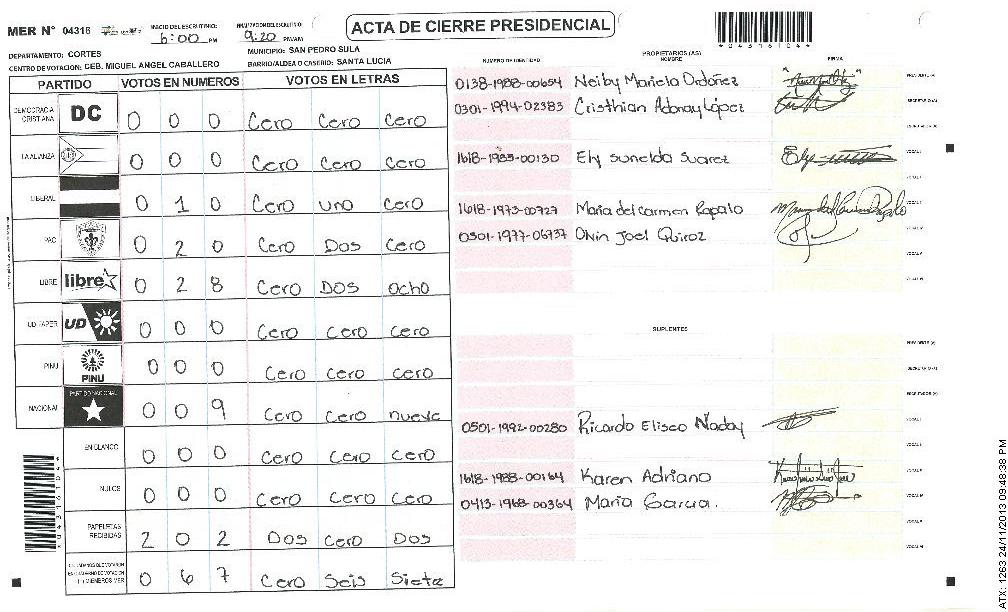 MER N° 04316
INICIO DEL ESCRUTINIO:
6:00 PM
9:20 PM/AM
ACTA DE CIERRE PRESIDENCIAL
*04316104*
DEPARTAMENTO: CORTES
MUNICIPIO: SAN PEDRO SULA
CENTRO DE VOTACION: CEB. MIGUEL ANGEL CABALLERO
BARRIO/ALDEA O CASERIO: SANTA LUCIA
PARTIDO VOTOS EN NUMEROS VOTOS EN LETRAS
DEMOCRACIA CRISTIANA DC 0 0 0 Cero Cero Cero
LA ALIANZA 0 0 0 Cero Cero Cero
LIBERAL 0 1 0 Cero uno Cero
PAC 0 2 0 Cero Dos Cero
LIBRE libre 0 2 8 Cero Dos ocho
UD FAPER UD 0 0 0 Cero Cero Cero
PINU PINU 0 0 0 Cero Cero Cero
NACIONAL PARTIDO NACIONAL 0 0 9 Cero Cero nueve
EN BLANCO 0 0 0 Cero Cero Cero
NULOS 0 0 0 Cero Cero Cero
PAPELETAS RECIBIDAS 2 0 2 Dos Cero Dos
0 6 7 Cero Seis Siete
PROPIETARIOS (AS)
NUMERO DE IDENTIDAD NOMBRE FIRMA
0138-1988-00654 Neiby Mariela Ordoñez
0301-1994-02383 Cristhian Adonay López
1618-1983-00130 Ely Sunelda Suarez
1618-1973-00727 Maria del Carmen Papalo
0501-1977-06737 Olvin Joel Quiroz
SUPLENTES
0501-1992-00280 Ricardo Eliseo Naday
1618-1988-00164 Karen Adriano
0413-1968-00364 Maria Garcia.
ATX: 1263 24/11/2013 09:48:38 PM